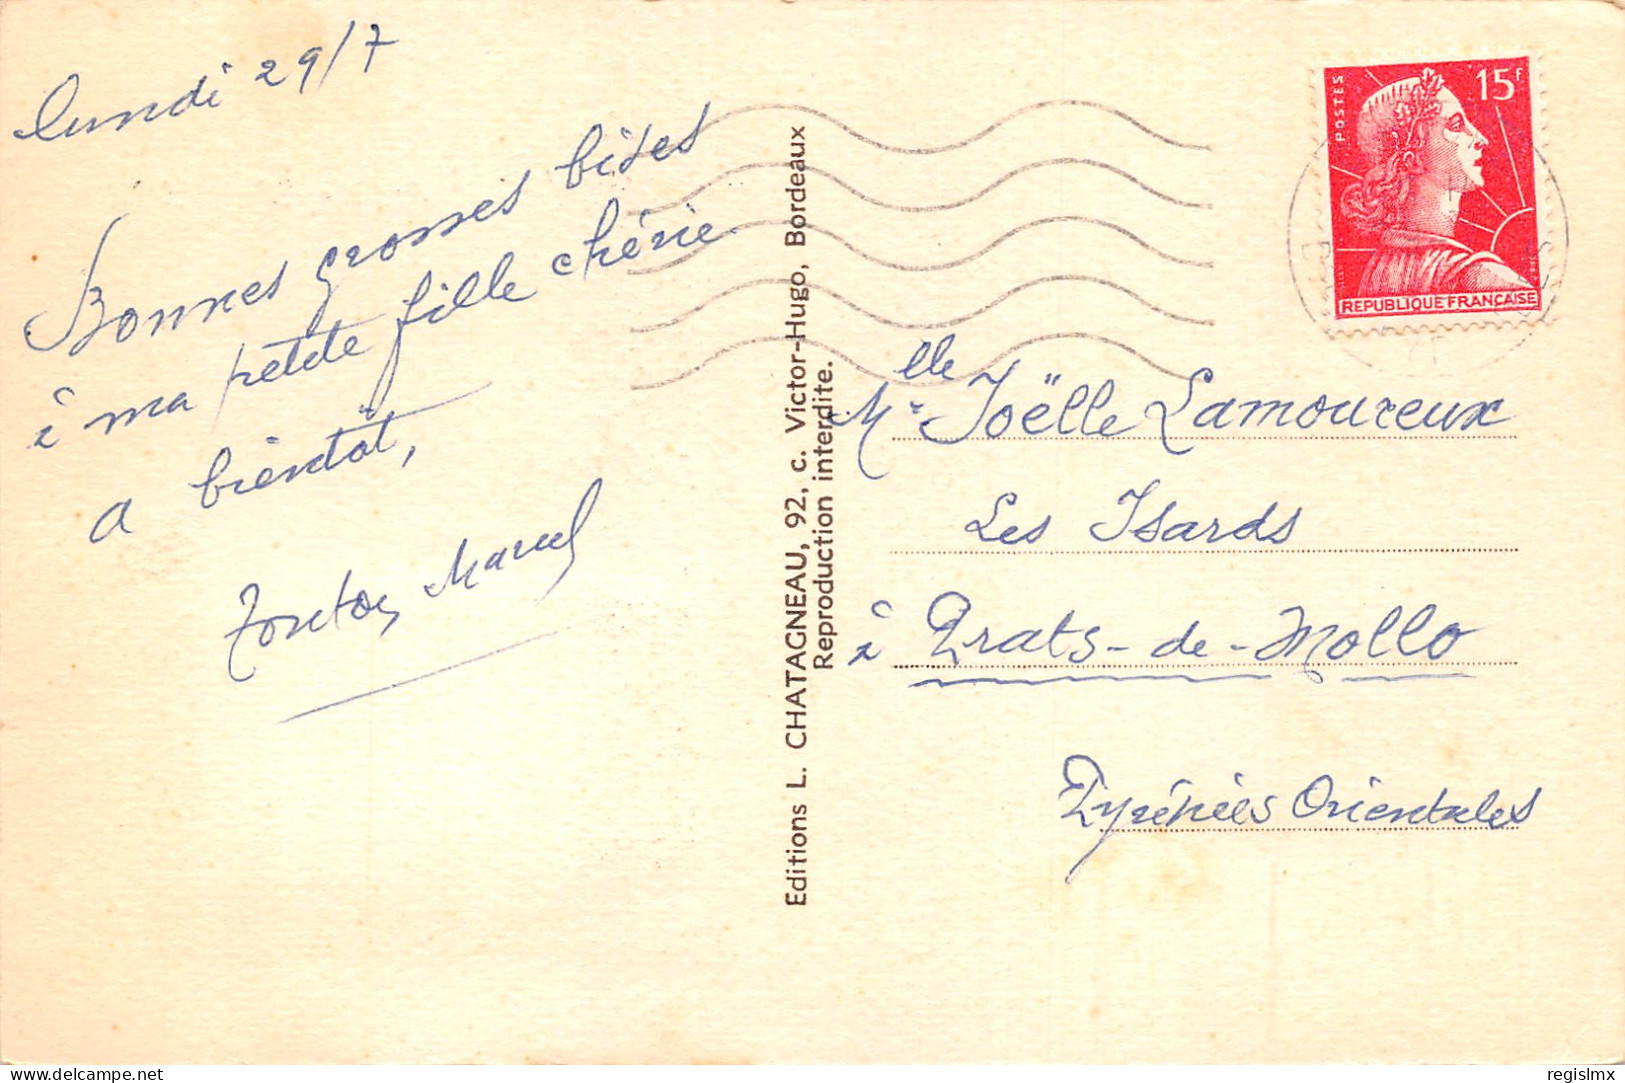 lundi 29/7
Bonnes grosses bises
à ma petite fille chérie
A bientôt,
Tonton Marcel
Editions L. CHATAGNEAU, 92, c. Victor-Hugo, Bordeaux
Reproduction interdite.
POSTES
15F
REPUBLIQUE FRANCAISE
Mlle Joëlle Lamoureux
Les Isards
à Prats-de-Mollo
Pyrénées Orientales
delcampe.net
regislmx